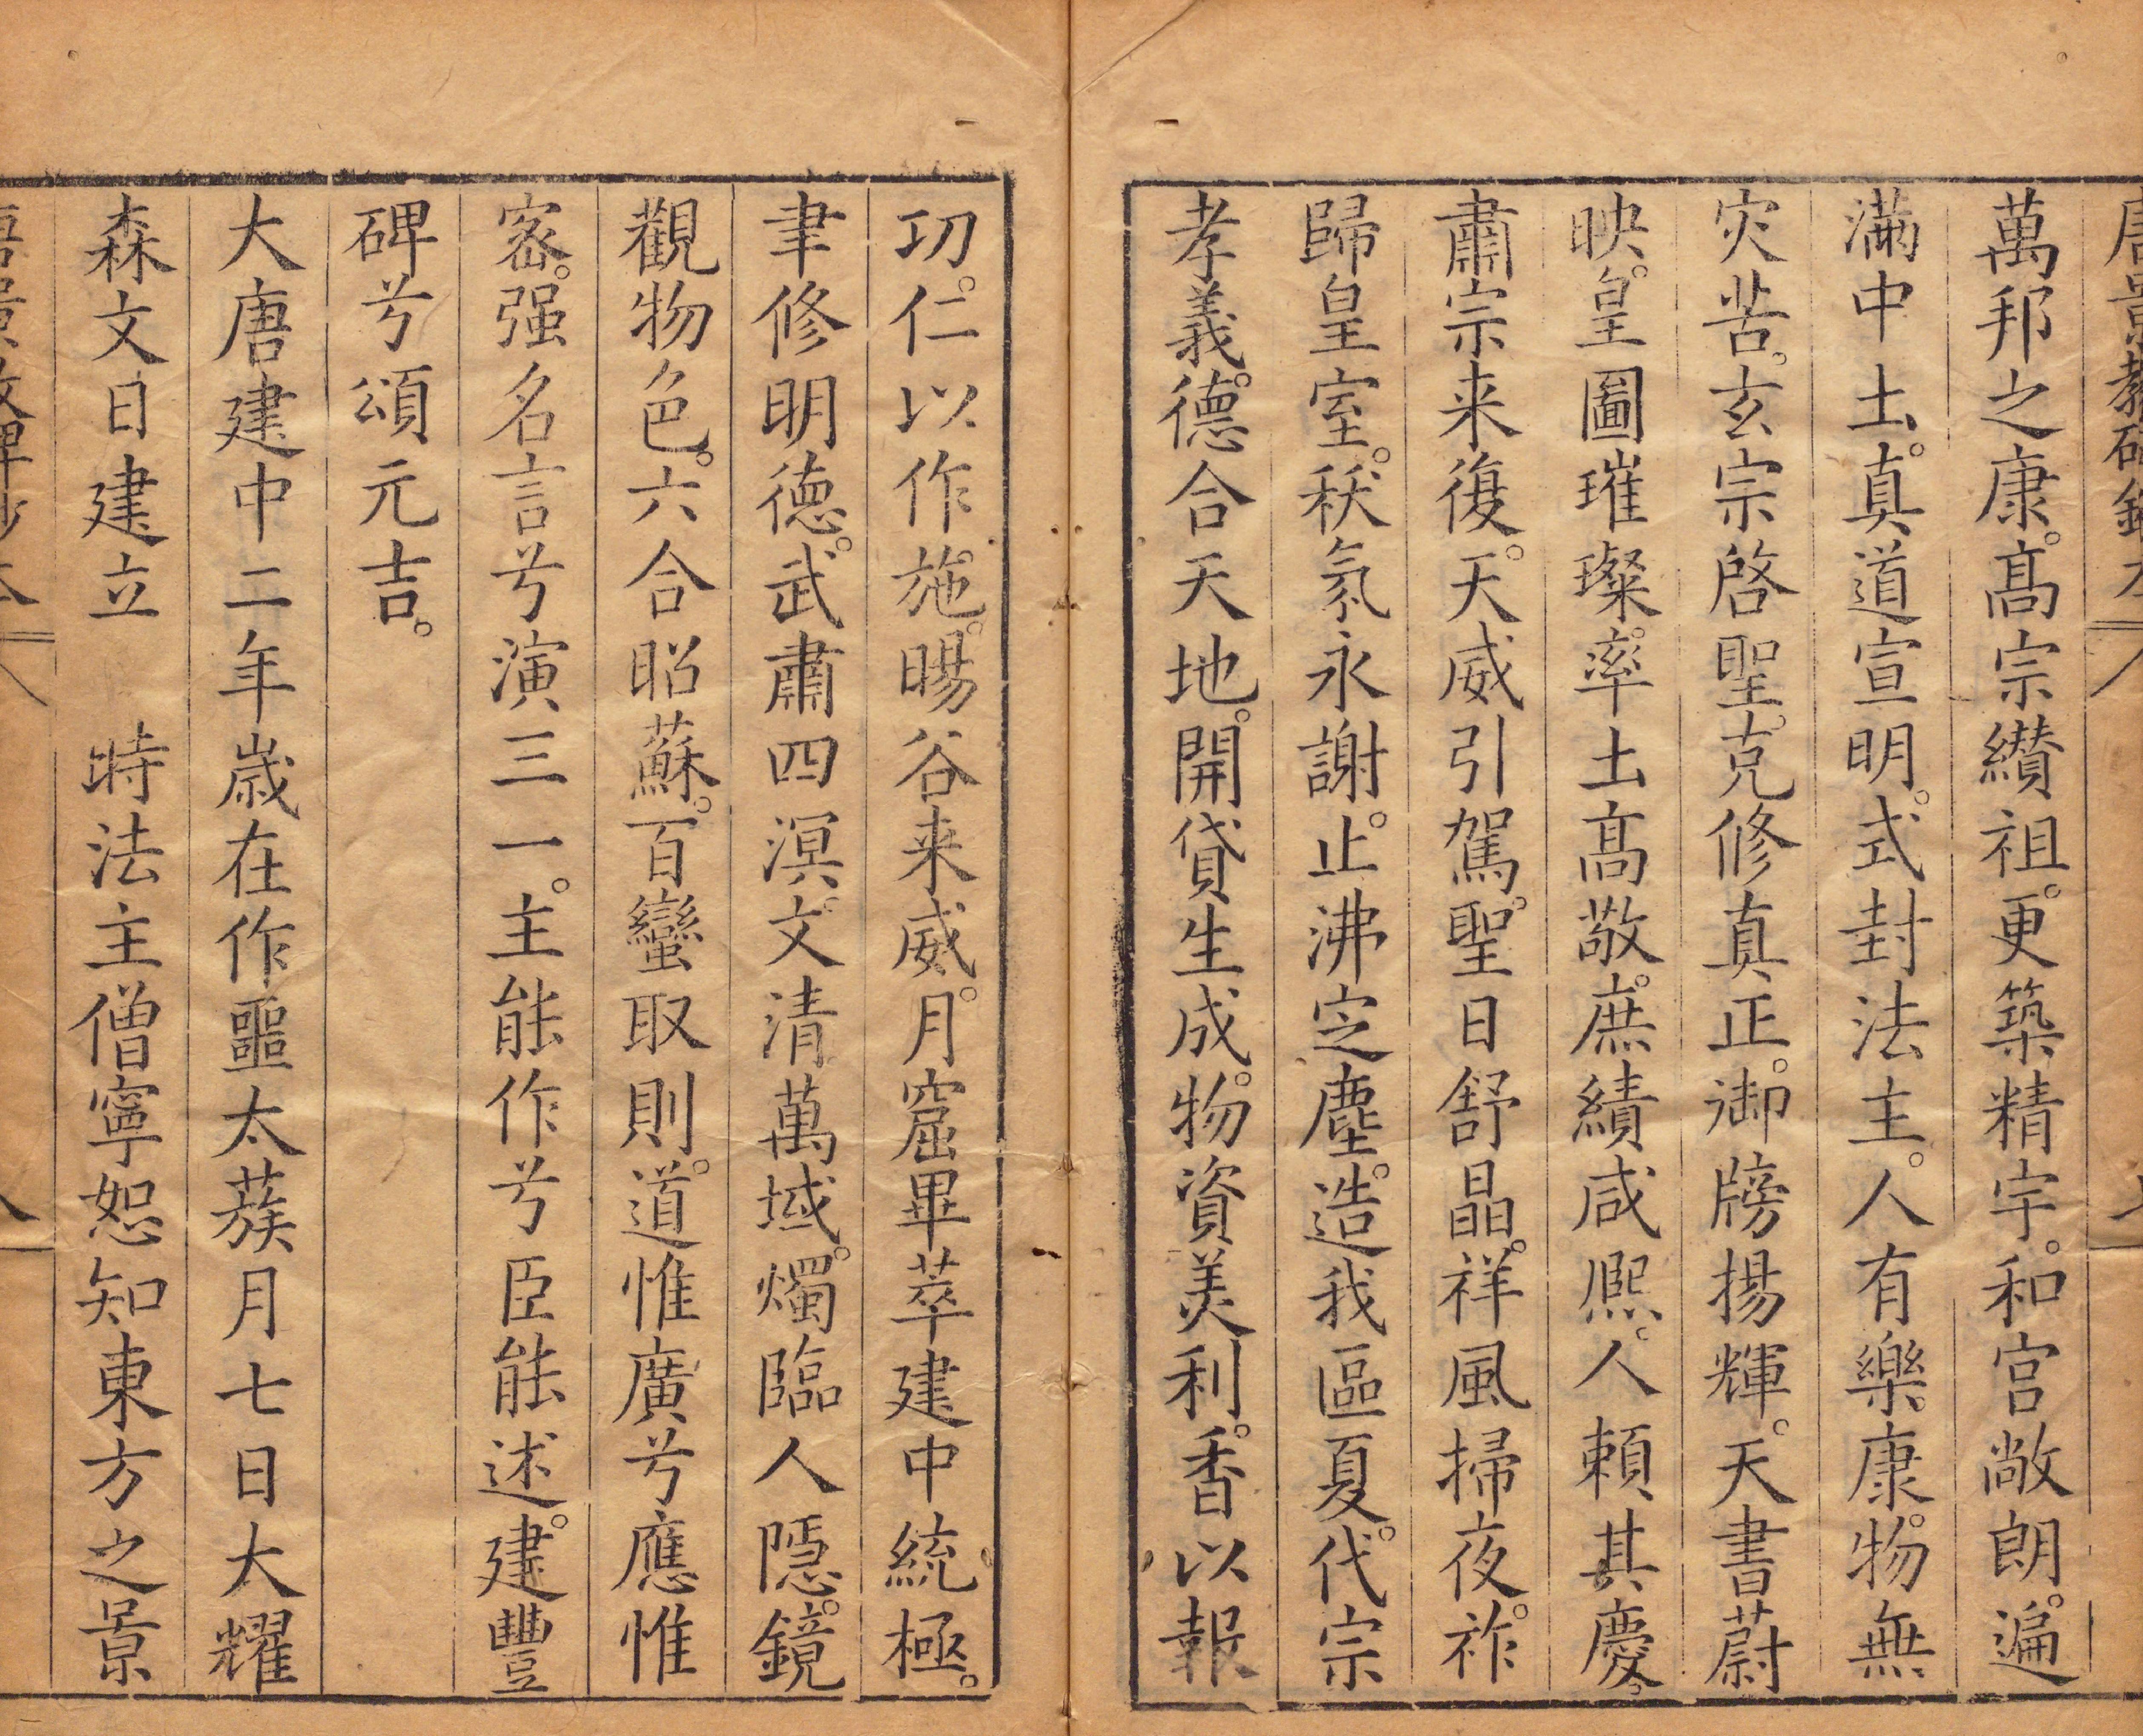 萬邦之康。髙宗纘祖。更築精宇。和宫敞朗。遍
滿中土。真道宣明。式封法主。人有樂康。物無
灾苦。玄宗啓聖。克修真正。御牓揚輝。天書蔚
映。皇圖璀璨。率土髙敬。庶績咸熈。人賴其慶。
肅宗来復。天威引駕。聖日舒晶。祥風掃夜。祚
歸皇室。祅氛永謝。止沸定塵。造我區夏。代宗
孝義。德合天地。開貸生成。物資美利。香以報
功。仁以作施。暘谷来威。月窟畢萃。建中統極。
聿修明德。武肅四溟。文清萬域。燭臨人隠。鏡
觀物色。六合昭蘇。百蠻取則。道惟廣兮應惟
宻。强名言兮演三一。主能作兮臣能述。建豐
碑兮頌元吉。
大唐建中二年歲在作噩太蔟月七日大耀
森文日建立　時法主僧寧恕知東方之景